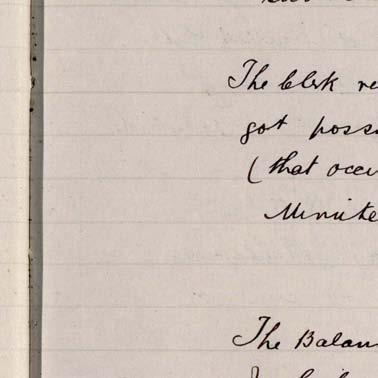 The Clerk re
got poss
(that occu
Minute
The Balan